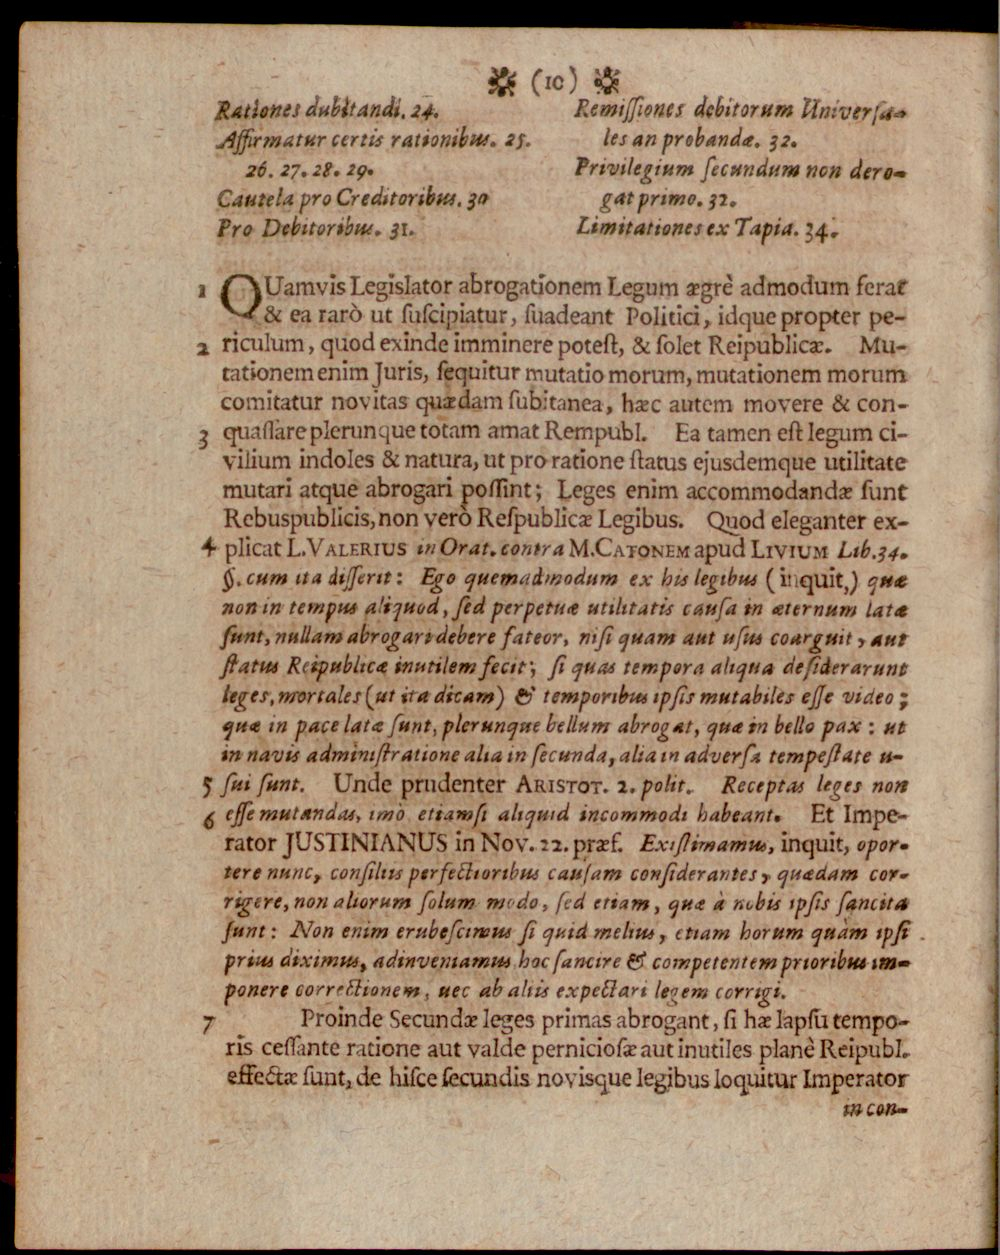 (10)
Rationes dubitandi. 24.
Affirmatur certis rationibus. 25.
26. 27. 28. 29.
Cautela pro Creditoribus. 30
Pro Debitoribus. 31.
Remiſſiones debitorum Univerſa-
les an probandæ. 32.
Privilegium ſecundum non dero-
gat primo. 32.
Limitationes ex Tapia. 34.
1 QUamvis Legislator abrogationem Legum ægrè admodum ferat
& ea rarò ut ſuſcipiatur, ſuadeant Politici, idque propter pe-
2 riculum, quod exinde imminere poteſt, & ſolet Reipublicæ. Mu-
tationem enim Juris, ſequitur mutatio morum, mutationem morum
comitatur novitas quædam ſubitanea, hæc autem movere & con-
3 quaſſare plerunque totam amat Rempubl. Ea tamen eſt legum ci-
vilium indoles & natura, ut pro ratione ſtatus ejusdemque utilitate
mutari atque abrogari poſſint; Leges enim accommodandæ ſunt
Rebuspublicis, non verò Reſpublicæ Legibus. Quod eleganter ex-
4 plicat L. VALERIUS in Orat. contra M. CATONEM apud LIVIUM Lib. 34.
§. cum ita differit: Ego quemadmodum ex his legibus (inquit,) quæ
non in tempus aliquod, ſed perpetuæ utilitatis cauſa in æternum latæ
ſunt, nullam abrogari debere fateor, niſi quam aut uſus coarguit, aut
ſtatus Reipublicæ inutilem fecit; ſi quas tempora aliqua deſiderarunt
leges, mortales (ut ita dicam) & temporibus ipſis mutabiles eſſe video;
quæ in pace latæ ſunt, plerunque bellum abrogat, quæ in bello pax: ut
in navis adminiſtratione alia in ſecunda, alia in adverſa tempeſtate u-
5 ſui ſunt. Unde prudenter ARISTOT. 2. polit. Receptas leges non
6 eſſe mutandas, imò etiamſi aliquid incommodi habeant. Et Impe-
rator JUSTINIANUS in Nov. 22. præf. Exiſtimamus, inquit, opor-
tere nunc, conſiliis perfectioribus cauſam conſiderantes, quædam cor-
rigere, non aliorum ſolum modo, ſed etiam, quæ à nobis ipſis ſancita
ſunt: Non enim erubeſcimus ſi quid melius, etiam horum quàm ipſi
prius diximus, adinveniamus hoc ſancire & competentem prioribus im-
ponere correctionem, uec ab aliis expectari legem corrigi.
7 Proinde Secundæ leges primas abrogant, ſi hæ lapſu tempo-
ris ceſſante ratione aut valde pernicioſæ aut inutiles planè Reipubl.
effectæ ſunt, de hiſce ſecundis novisque legibus loquitur Imperator
in con-